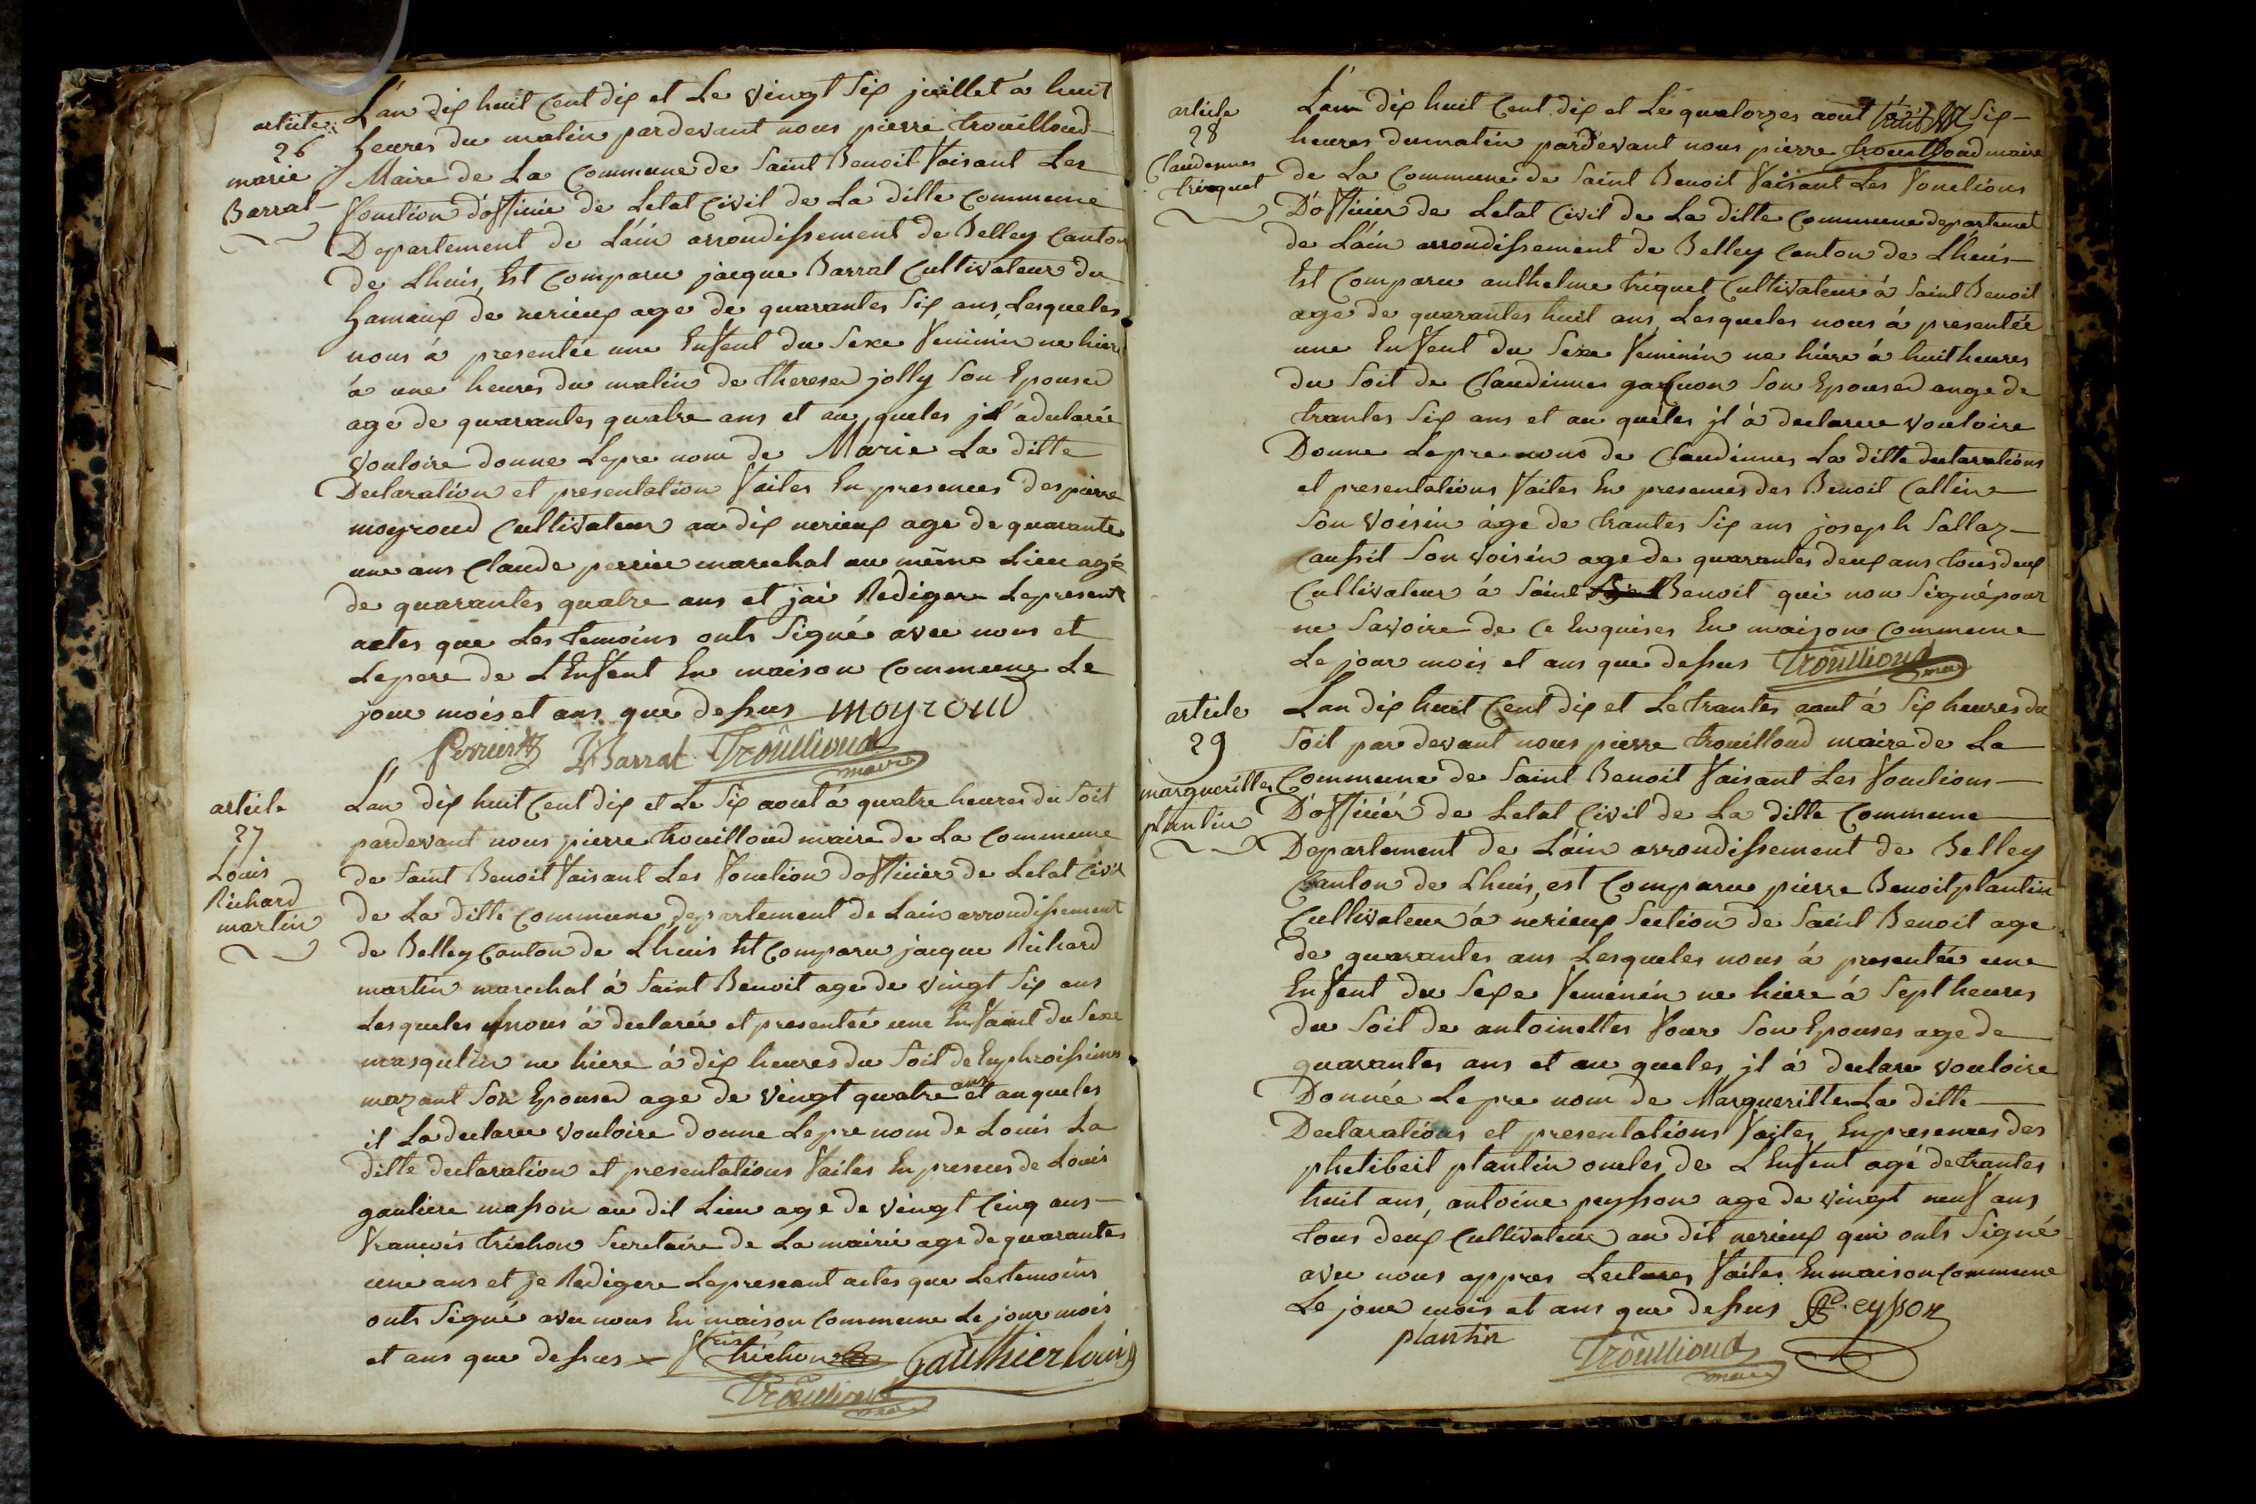 article
26
marie
Barral
L'an dix huit Cent dix et Le vingt Six juillet á huit
heures du matin pardevant nous pierre trouilloud
Maire de La Commune de Saint Benoit Vaisant Les
Vonction d'offiicie de Letat Civil de La ditte Commune
Departement de L'áin arrondissement de Belley Canton
de Lhuis, Est Comparu jacque Barral Cultivateur du
hamaux de nerieux age de quarantes Six ans, Lesqueles
nous á presentée une EnVent du Sexe Veminin ne hiere
á une heures du matin de therese jolly Son Epouse
age de quarantes quatre ans et au queles jl á declarée
vouloire donne Lepre nom de Marie La ditte
Declaration et presentation Vaites En presences des pierre
moyroud Cultivateur au dix nerieux age de quarante
une ans Claude perrier marechal au même Lieu agé
de quarantes quatre ans et jai Redigere Lepresent
actes que Les temoins onts Signé avec nous et
Lepere de L'EnVent En maison Commune Le
jour mois et ans que dessus moyroud
Perrier Barral Trouilloud
maire
article
27
Louis
Richard
martin
L'an dix huit Cent dix et Le Six aout á quatre heures du Soit
pardevant nous pierre trouilloud maire de La Commune
de Saint Benoit Vaisant Les Vonction d'offiicier de Letat Civil
de La ditte Commune, departement de Lain arrondissement
de Belley Canton de Lhuis Est Comparu jacque Richard
martin marechal á Saint Benoit age de vingt Six ans
Lesqueles nous á declarée et presentée une EnVaint du Sexe
masqulin ne hiere á dix heures du Soit de Euphroissinne
mazant Son Epouse age de vingt quatre ans et au queles
il La declaree vouloire donne Lepre nom de Louis La
ditte declaration et presentations Vaites En presences de Louis
gautiere masson au dit Lieu age de vingt Cinq ans
Vrancois trichon Secretaire de La mairie age de quarantes
une ans et je Redigere Lepresent actes que Lestemoins
onts Signé avec nous En maison Commune Le jour mois
et ans que dessus trichon Gauthier Louis
Trouilloud
maire
article
28
Claudinnes
triquet
L'an dix huit Cent dix et Le quatorzes aout á Six
heures du matin pardevant nous pierre trouilloud maire
de La Commune de Saint Benoit Vaisant Les Vonctions
D'offiicier de Letat Civil de La ditte Commune departemet
de L'áin arrondissement de Belley Canton de Lhuis
Est Comparu anthelme triquet Cultivateur á Saint Benoit
age de quarantes huit ans, Lesqueles nous á presentée
une EnVent du Sexe Veminin ne hiere á huit heures
du Soit de Claudinnes Son Epouse ange de
trantes Six ans et au quéles jl á declaree vouloire
Donne Lepre nom de Claudinnes La ditte declarations
et presentations Vaites En presences des Benoit Callin
Son voisin áge de trantes Six ans joseph Sallaz
aussit Son voisin age de quarantes deux ans tous deux
Cultivateur á Saint Benoit qui non Signé pour
ne Savoire de Ce Enquises En maison Commune
Le jour mois et ans que dessus Trouilloud
maire
article
29
marguerittes
plantin
L'an dix huit Cent dix et Le trantes aout á Six heures du
Soit par devant nous pierre trouilloud maire de La
Commune de Saint Benoit Vaisant Les Vonctions
D'offiiciér de Letat Civil de La ditte Commune
Departement de L'áin arrondissement de Belley
Canton de Lhuis, est Comparu pierre Benoit plantin
Cultivateur á nerieux Section de Saint Benoit age
de quarantes ans Lesqueles nous á presentée une
EnVent du Sexe Veminin ne hiere á Sept heures
du Soit de antoinettes Vour Son Epouses age de
quarantes ans et au queles jl á declare vouloire
Donnée Lepre nom de Margueritte La ditte
Declarations et presentations Vaites En presences des
phetibeit plantin oncles de L'EnVent agé de trantes
huit ans, antoine peysson age de vingt neuf ans
tous deux Cultivateur au dit nerieux qui onts Signé
avec nous appres Lectures Vaites En maison Commune
Le jour mois et ans que dessus Peysson
plantin Trouilloud
maire